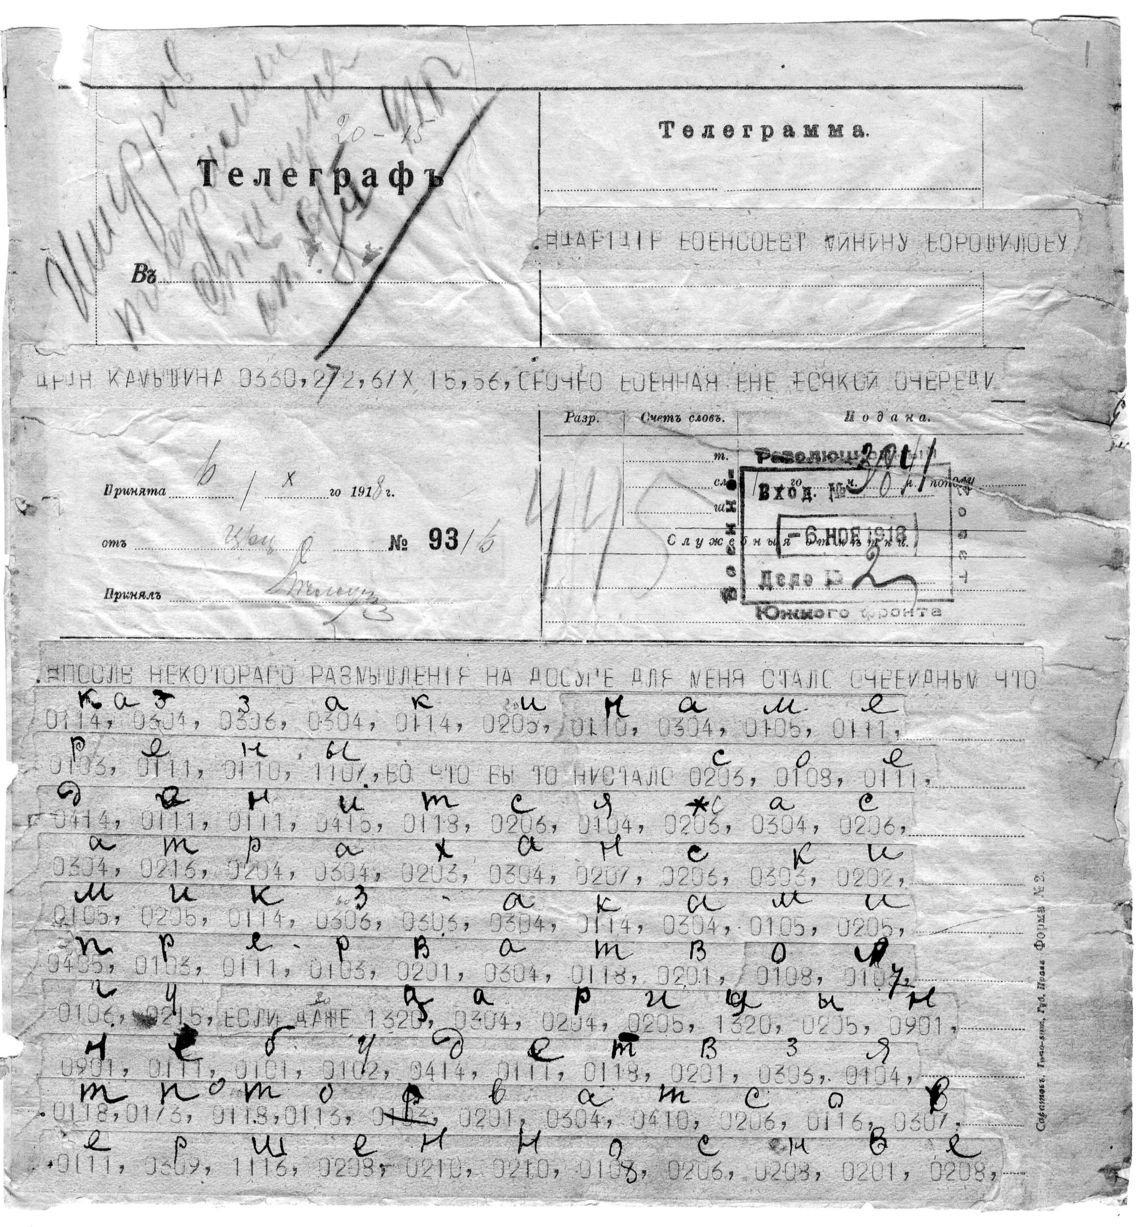 шифров
телеграмма
20 - 15
Телеграфъ
Телеграмма.
Въ
ВЦАРІЦІР ВОЕНСОВЕТ МИНИНУ ВОРОШИЛОВУ
КАМЫШИНА 0330,2/2,6/X 15,56,СРОЧНО ВОЕННАЯ ВНЕ ВСЯКОЙ ОЧЕРЕДИ
Разр. Счетъ словъ. Подана.
т.
Принята 6/X го 1918 г.
отъ Цар № 93/6
Принялъ
445
Служебныя отмѣтки.
Революционный
Вход. № 3041
-6 НОЯ 1918
Дело № 2
Южного фронта
ВПОСЛЕ НЕКОТОРАГО РАЗМЫШЛЕНІЯ НА ДОСУГЕ ДЛЯ МЕНЯ СТАЛО ОЧЕВИДНЫМ ЧТО
к а з з а к и н а м е
0114, 0304, 0306, 0304, 0114, 0205, 0110, 0304, 0105, 0111,
р е н ы с о е
0103, 0111, 0110, 1107, ВО ЧТО БЫ ТО НИСТАЛО 0203, 0108, 0111,
д е н и т с я с а с
0414, 0111, 0111, 0415, 0118, 0206, 0104, 0203, 0304, 0206,
а т р а х а н с к и
0304, 0216, 0204, 0304, 0203, 0304, 0207, 0206, 0303, 0202,
м и к з а к а м и
0105, 0205, 0114, 0306, 0303, 0304, 0114, 0304, 0105, 0205,
п р е р в а т в о л
0405, 0103, 0111, 0103, 0201, 0304, 0118, 0201, 0108, 0107,
г у ц а р и ц ы н
0106, 0215, ЕСЛИ ДАЖЕ 1320, 0304, 0204, 0205, 1320, 0205, 0901,
н е б у д е т в з я
0901, 0111, 0101, 0102, 0414, 0111, 0118, 0201, 0303, 0104,
т п о т о р в а т с о в
0118,0173, 0118,0113, 0103, 0201, 0304, 0410, 0206, 0116, 0307,
е р ш е н н о с н в е
0111, 0309, 1116, 0208, 0210, 0210, 0108, 0206, 0208, 0201, 0208,
Форма № 2.